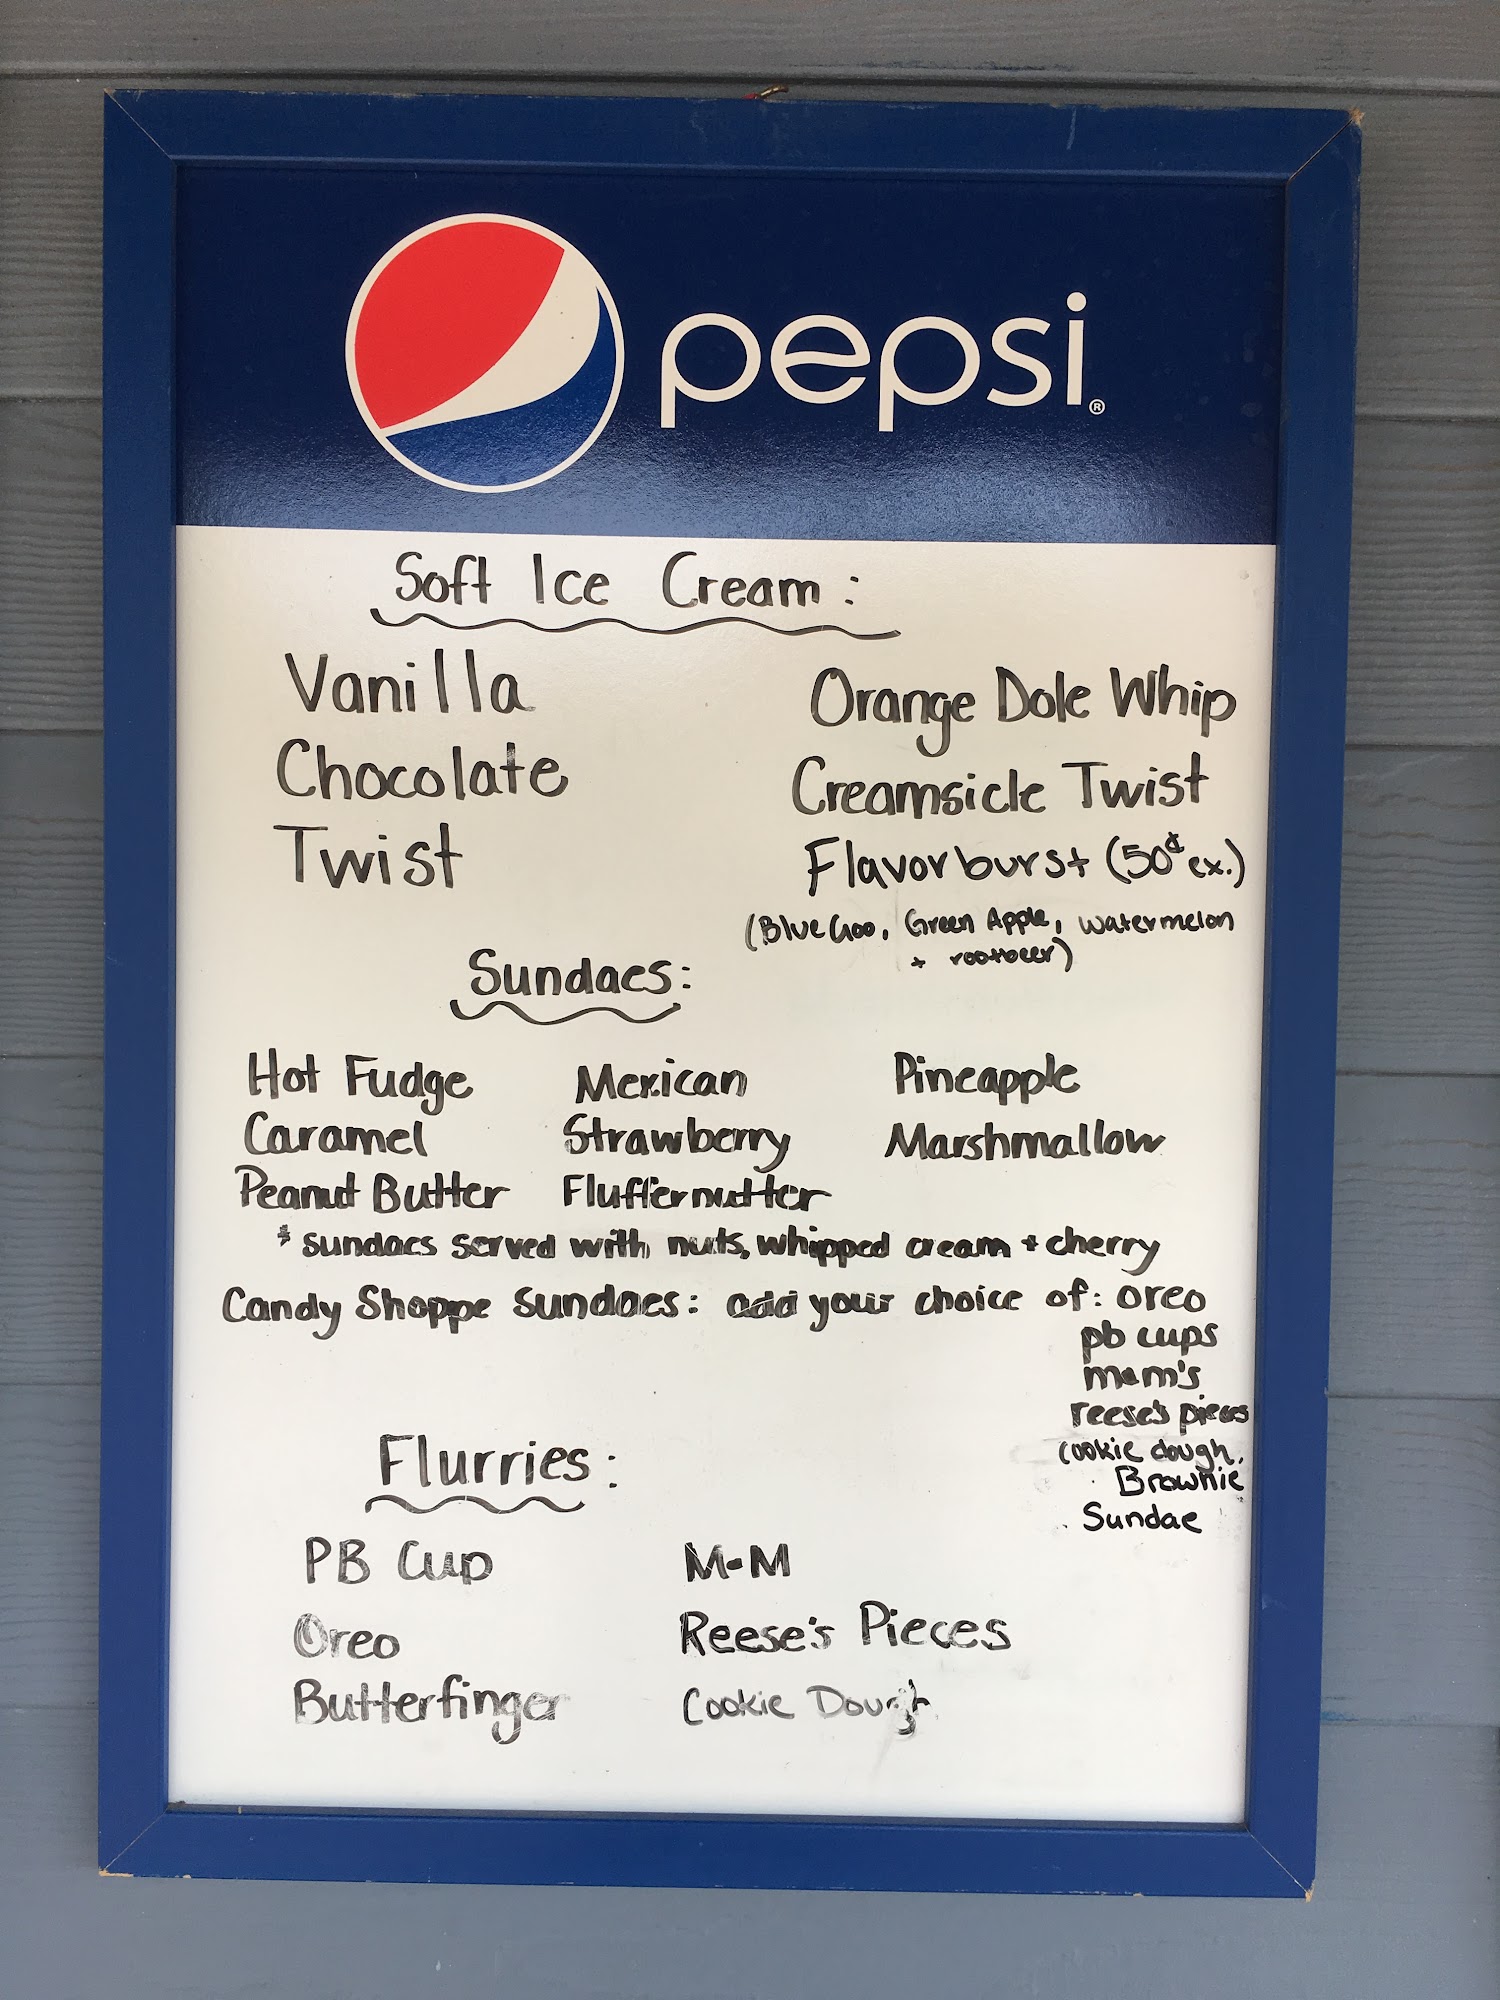 pepsi®
Soft Ice Cream:
Vanilla
Chocolate
Twist
Orange Dole Whip
Creamsicle Twist
Flavorburst (50¢ ex.)
(Blue Goo, Green Apple, watermelon
+ rootbeer)
Sundaes:
Hot Fudge Mexican Pineapple
Caramel Strawberry Marshmallow
Peanut Butter Fluffernutter
* sundaes served with nuts, whipped cream + cherry
Candy Shoppe Sundaes: add your choice of: oreo
pb cups
m&m's
reese's pieces
cookie dough,
Brownie
Sundae
Flurries:
PB Cup M-M
Oreo Reese's Pieces
Butterfinger Cookie Dough